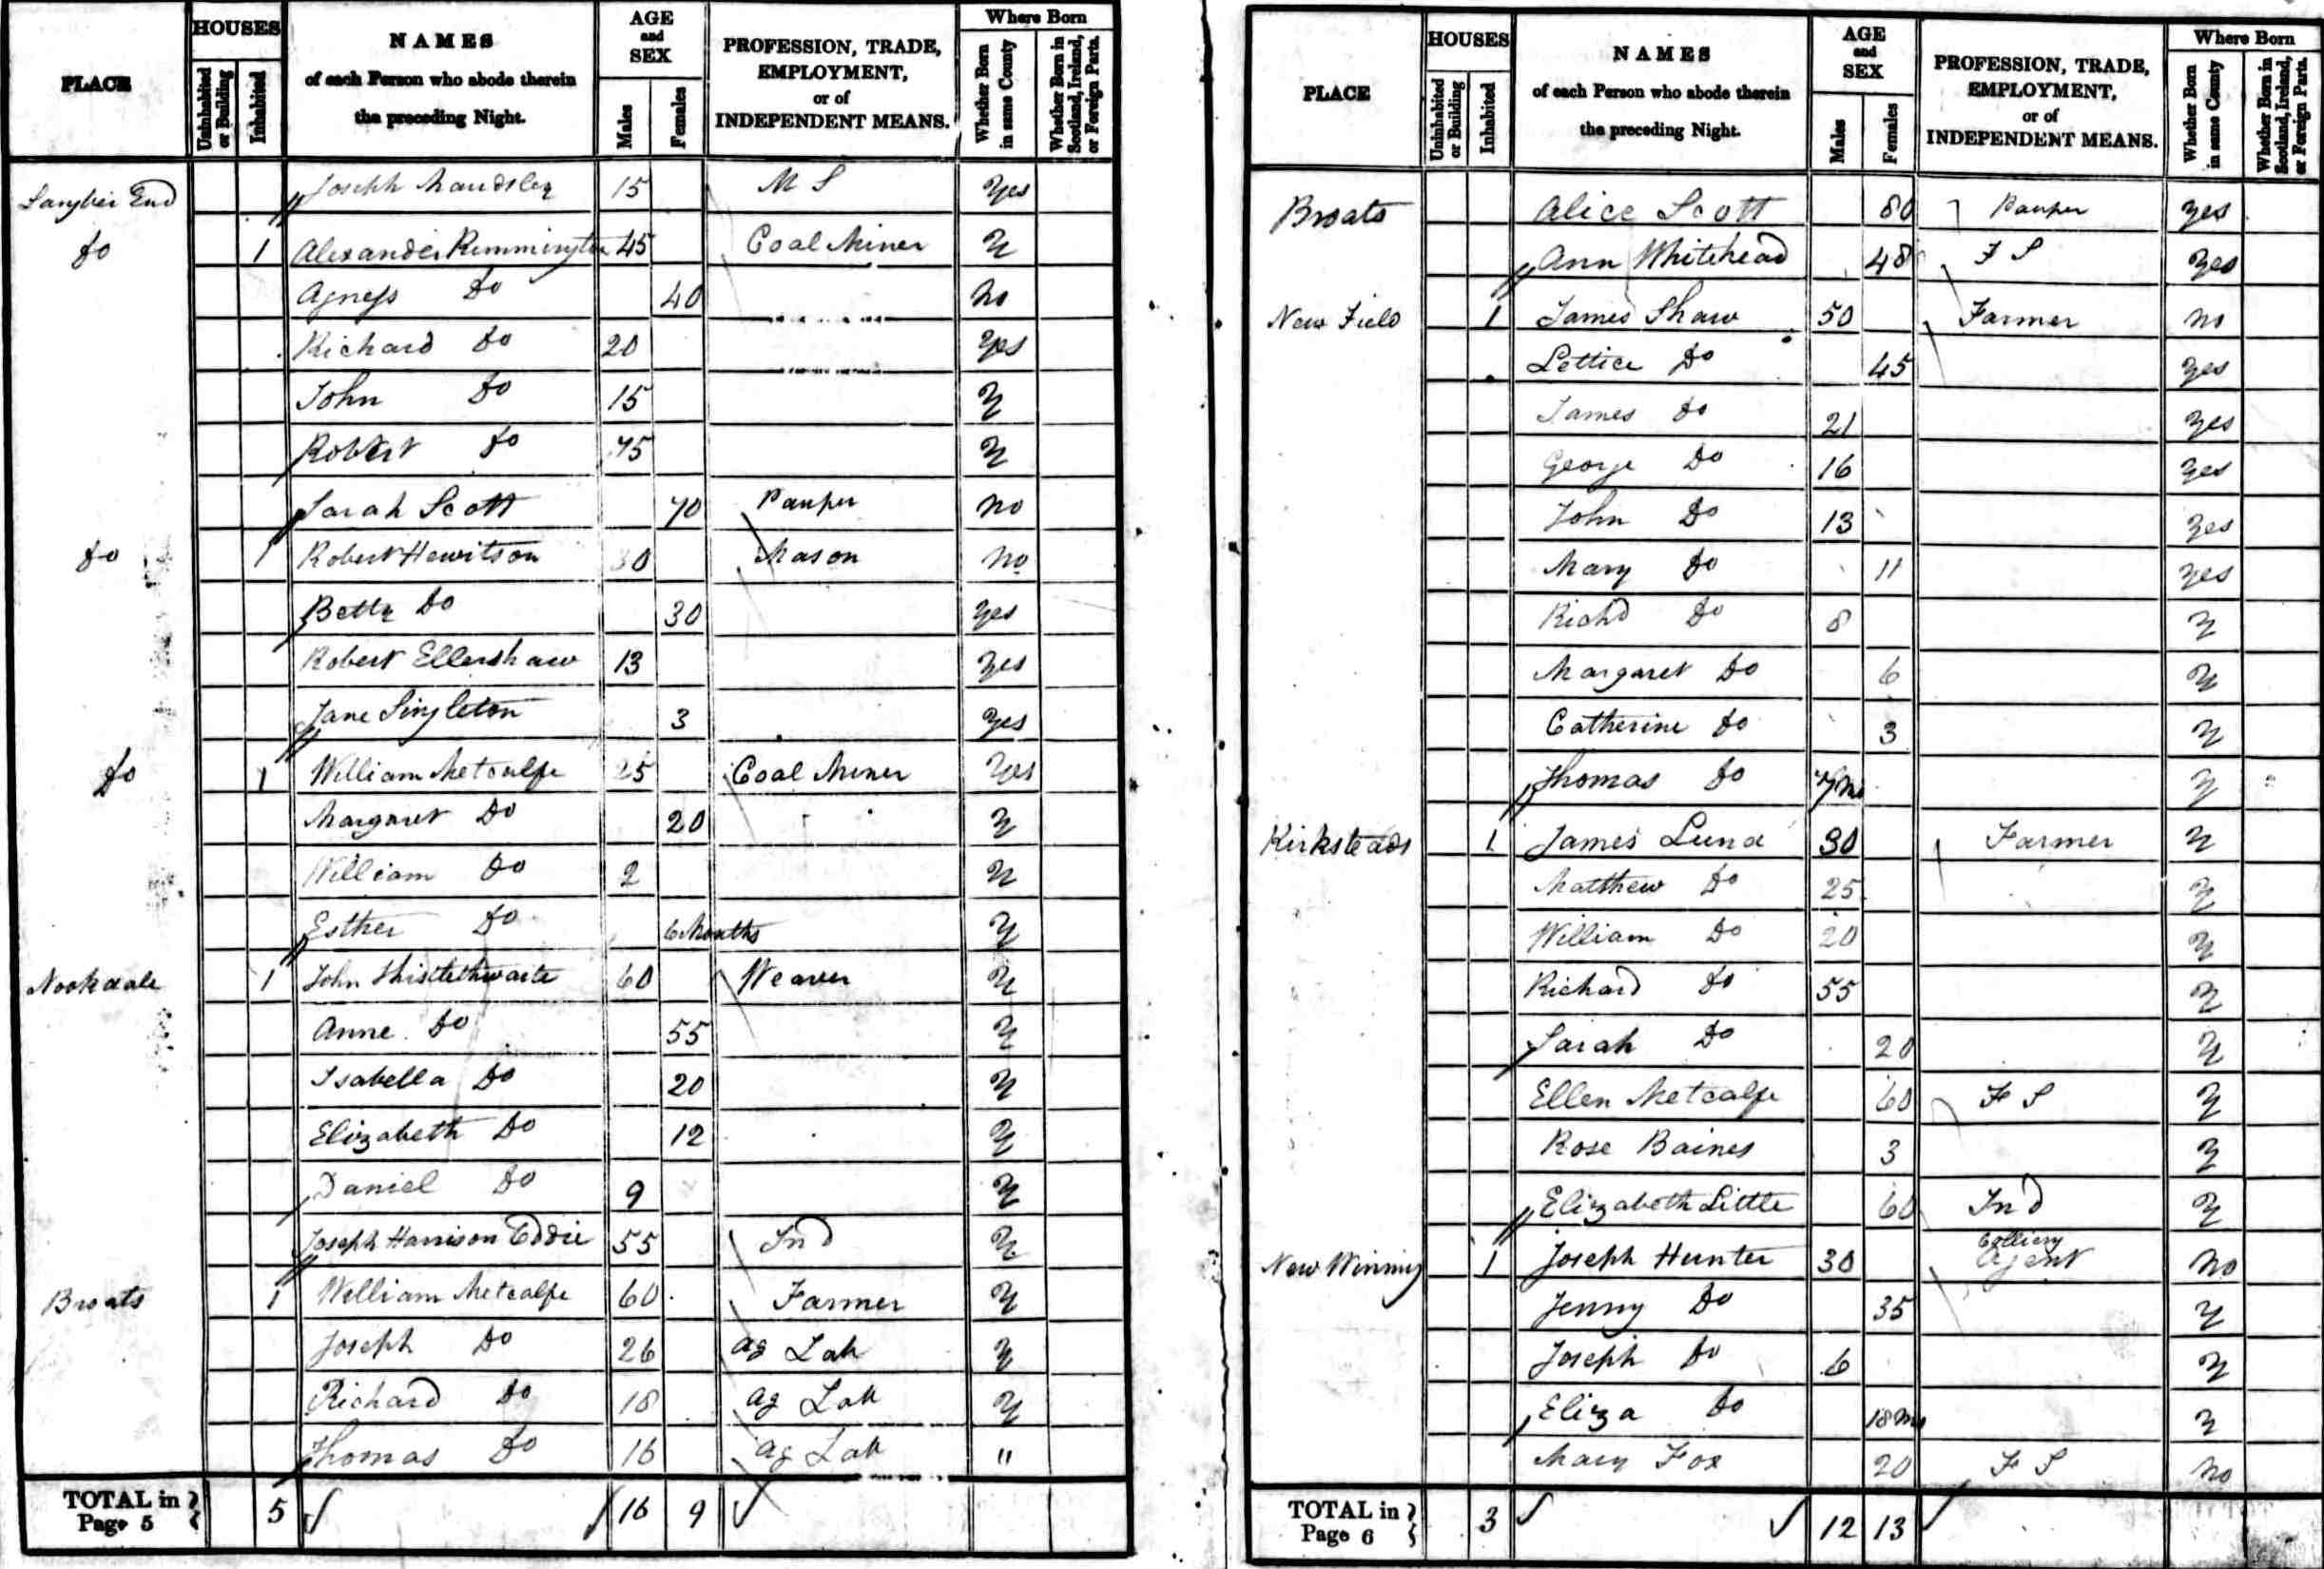 PLACE HOUSES Uninhabited or Building Inhabited NAMES of each Person who abode therein the preceding Night. AGE and SEX Males Females PROFESSION, TRADE, EMPLOYMENT, or of INDEPENDENT MEANS. Where Born Whether Born in same County Whether Born in Scotland, Ireland, or Foreign Parts.
End Joseph Maudsley 15 M S Yes
Do 1 Alexander Remmington 45 Coal Miner Y
Agness Do 40 No
Richard Do 20 Yes
John Do 15 Y
Robert Do 75 Y
Sarah Scott 70 Pauper No
Do 1 Robert Hewitson 30 Mason No
Betty Do 30 Yes
Robert Ellershaw 13 Yes
Jane Singleton 3 Yes
Do 1 William Metcalfe 25 Coal Miner Yes
Margaret Do 20 Y
William Do 2 Y
Esther Do 6 Months Y
Nookdale 1 John Thistlethwaite 60 Weaver Y
Anne Do 55 Y
Isabella Do 20 Y
Elizabeth Do 12 Y
Daniel Do 9 Y
Joseph Harrison Eddie 55 Ind Y
Broats 1 William Metcalfe 60 Farmer Y
Joseph Do 26 Ag Lab Y
Richard Do 18 Ag Lab Y
Thomas Do 16 Ag Lab "
TOTAL in Page 5 5 ✓ ✓ 16 9 ✓
PLACE HOUSES Uninhabited or Building Inhabited NAMES of each Person who abode therein the preceding Night. AGE and SEX Males Females PROFESSION, TRADE, EMPLOYMENT, or of INDEPENDENT MEANS. Where Born Whether Born in same County Whether Born in Scotland, Ireland, or Foreign Parts.
Broats Alice Scott 80 Pauper Yes
Ann Whitehead 48 F S Yes
New Field 1 James Shaw 50 Farmer No
Lettice Do 45 Yes
James Do 21 Yes
George Do 16 Yes
John Do 13 Yes
Mary Do 11 Yes
Richd Do 8 Y
Margaret Do 6 Y
Catherine Do 3 Y
Thomas Do Y
Kirksteads 1 James Lund 30 Farmer Y
Matthew Do 25 Y
William Do 20 Y
Richard Do 55 Y
Sarah Do 20 Y
Ellen Metcalfe 60 F S Y
Rose Baines 3 Y
Elizabeth Little 60 Ind Y
New Winning 1 Joseph Hunter 30 Colliery Agent No
Jenny Do 35 Y
Joseph Do 6 Y
Eliza Do 18 Ms Y
Mary Fox 20 F S No
TOTAL in Page 6 3 ✓ ✓ 12 13 ✓